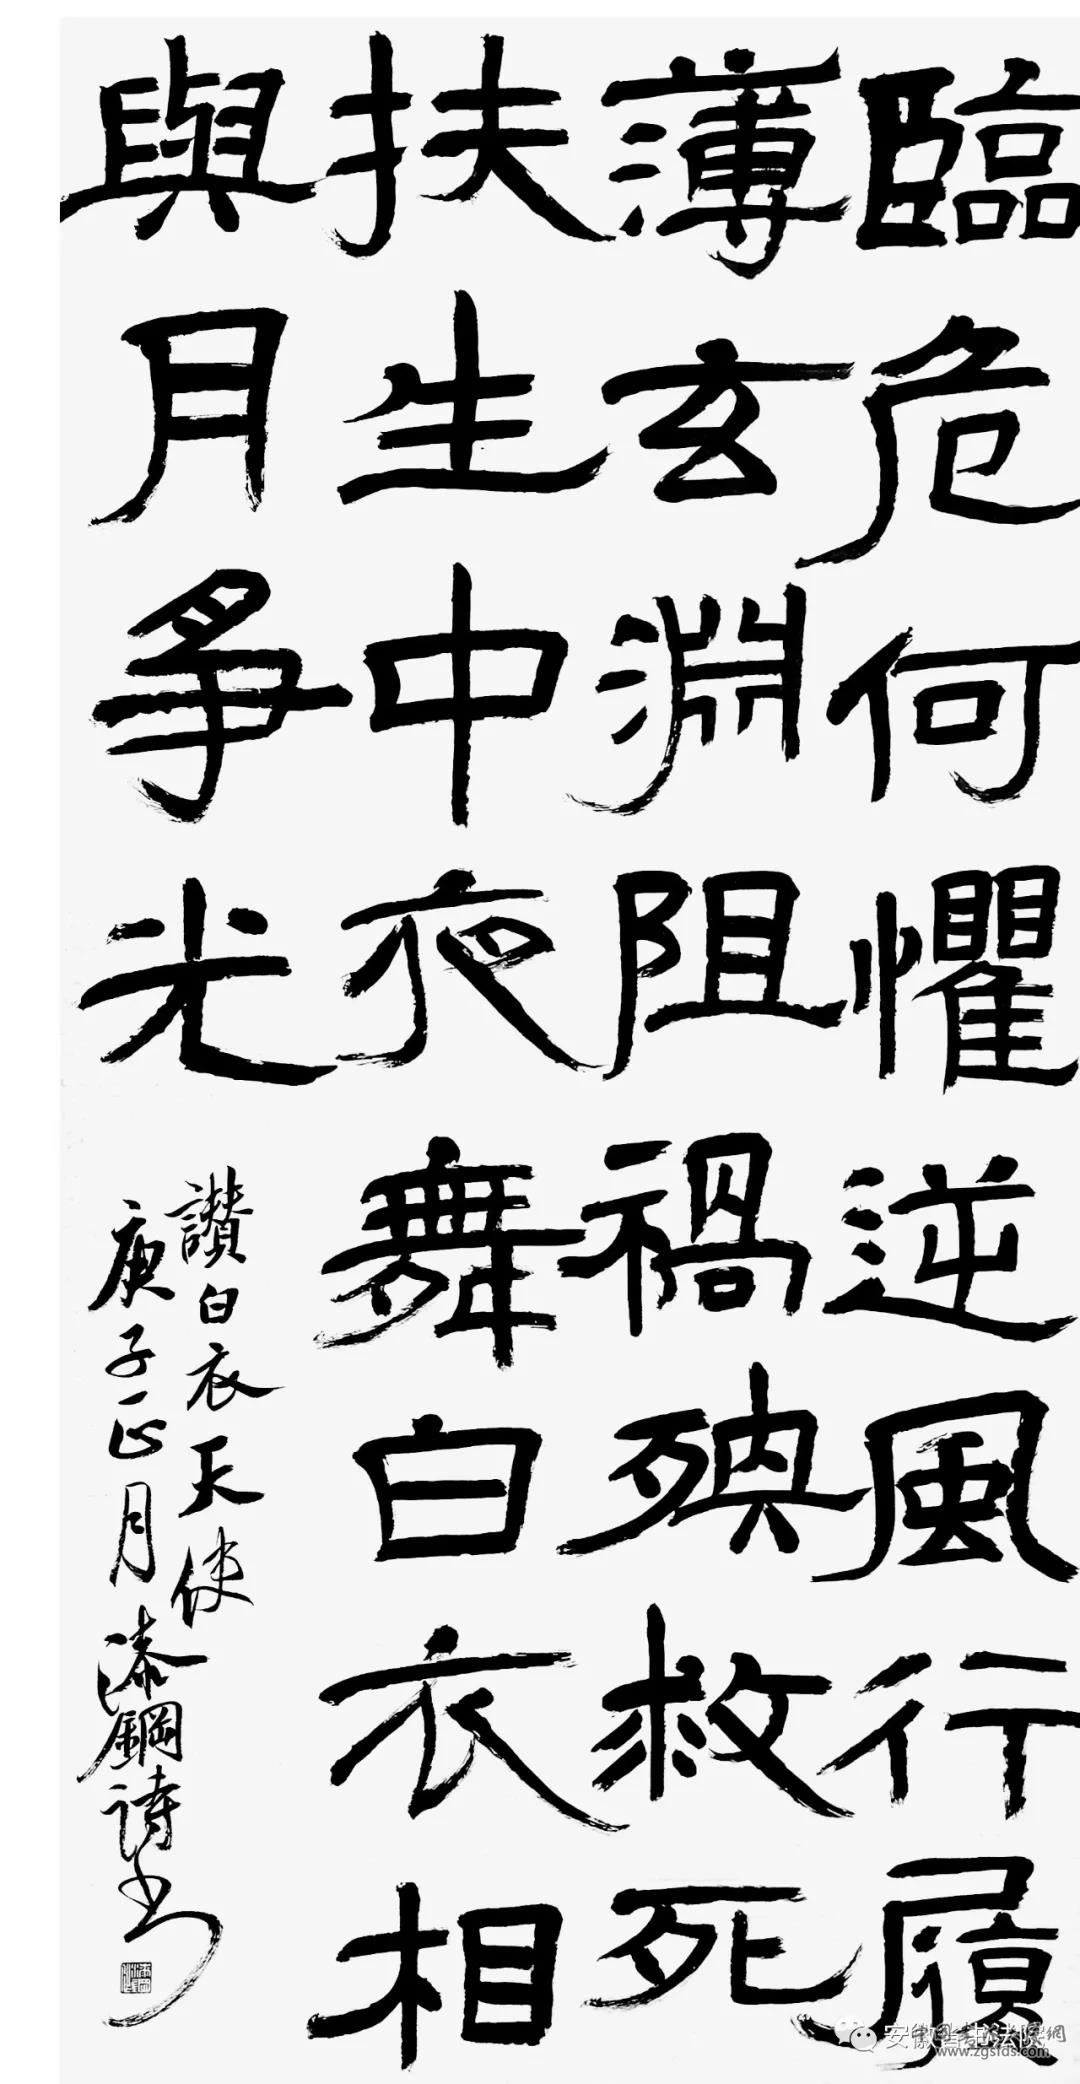 臨危何懼逆風行履
薄玄淵阻禍殃救死
扶生中夜舞白衣相
與月爭光
讚白衣天使
庚子正月漆鋼詩书
安徽省书法院
www.zgsfds.com